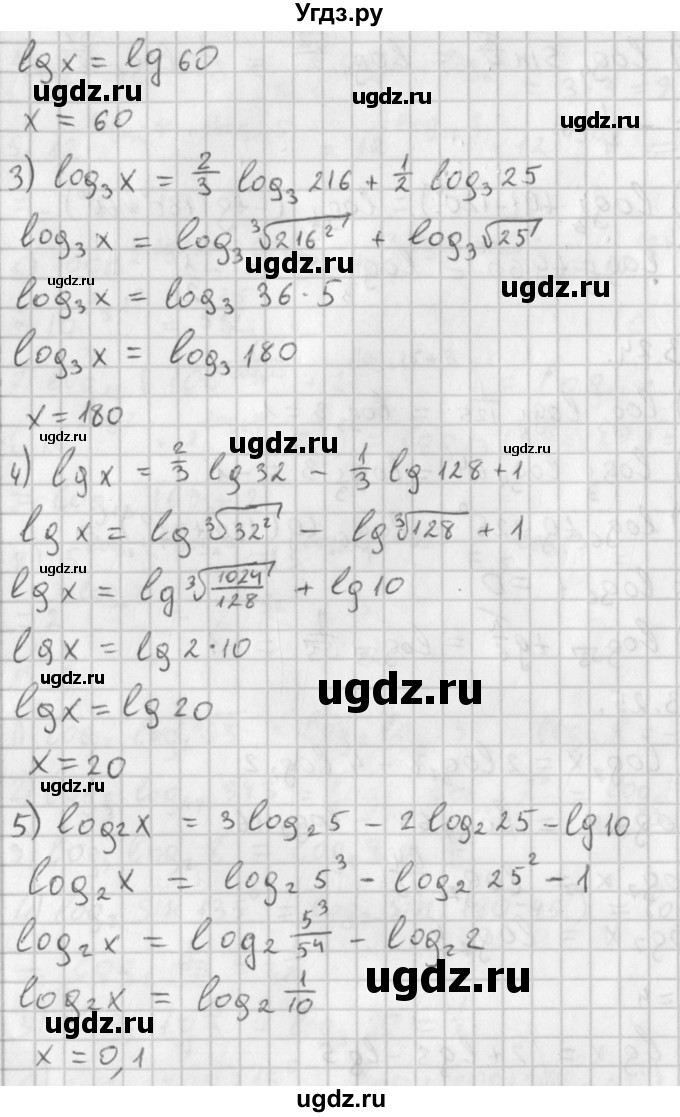 Угдз.ру
lg x = lg 60
ugdz.ru ugdz.ru ugdz.ru
x = 60
3) log₃ x = 2/3 log₃ 216 + 1/2 log₃ 25
log₃ x = log₃ ∛216² + log₃ √25
ugdz.ru ugdz.ru ugdz.ru
log₃ x = log₃ 36 · 5
log₃ x = log₃ 180
x = 180
ugdz.ru ugdz.ru ugdz.ru
4) lg x = 2/3 lg 32 - 1/3 lg 128 + 1
lg x = lg ∛32² - lg ∛128 + 1
ugdz.ru
lg x = lg ∛1024/128 + lg 10
lg x = lg 2 · 10
ugdz.ru ugdz.ru
lg x = lg 20
x = 20
ugdz.ru ugdz.ru
5) log₂ x = 3 log₂ 5 - 2 log₂ 25 - lg 10
log₂ x = log₂ 5³ - log₂ 25² - 1
log₂ x = log₂ 5³/5⁴ - log₂ 2
ugdz.ru
log₂ x = log₂ 1/10
ugdz.ru
x = 0,1
ugdz.ru ugdz.ru